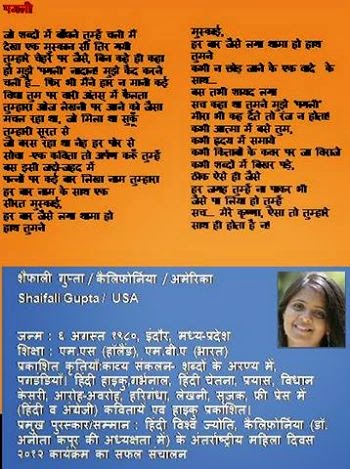 पगली
जो शब्दों में बाँधने तुम्हें चली मैं
देखा एक मुस्कान सी तिर गयी
तुम्हारे चेहरे पर जैसे, बिन कहे ही कहा
हो मुझे "पगली" नादान! मुझे कैद करने
चली है... फिर भी मैंने हार न मानी कई
बिंब तुम पर वारी अंतस् में फैलता
तुम्हारा ओज लेखनी पर आने को जैसा
मचल रहा था, जो मिला था मुझे
तुम्हारी सूरत से
जो बरस रहा था नेह हर पोर से
सोचा -एक कविता तो अर्पण करूँ तुम्हें
बस इसी जद्दो-जहद में
पन्नों पर कई बार लिखा नाम तुम्हारा
हर बार नाम के साथ एक
सीरत मुस्काई,
हर बार जैसे लगा थामा हो
हाथ तुमने
मुस्काई,
हर बार जैसे लगा थामा हो हाथ
तुमने
कभी न छोड़ जाने के एक वादे के
साथ...
बस तभी शायद लगा
सच कहा था तुमने मुझे "पगली"
मीरा भी कह देते तो रंज न होता!
कभी आत्मा में बसे तुम,
कभी हृदय में समाये
कभी किताबों के कवर पर जा विराजे
कभी शब्दों में बिखर पड़े,
ठीक ऐसे ही जैसे
हर जगह तुम्हें ना पाकर भी
जैसे पा लिया हो तुम्हें
सच... मेरे कृष्णा, ऐसा तो तुम्हारे
साथ ही होता है न!
शैफाली गुप्ता / कैलिफ़ोर्निया / अमेरिका
Shaifali Gupta / USA
जन्म : ६ अगस्त १९८०, इंदौर, मध्य-प्रदेश
शिक्षा : एम.एस (हालैंड), एम.बी.ए (भारत)
प्रकाशित कृतियाँ:काव्य संकलन- शब्दों के अरण्य में,
पगडंडियाँ। हिंदी हाइकु,गर्भनाल, हिंदी चेतना, प्रयास, विधान
केसरी, आरोह-अवरोह, हरिगंधा, लेखनी, सृजक, फ्री प्रेस में
(हिंदी व अंग्रेजी) कवितायें एवं हाइकु प्रकाशित।
प्रमुख पुरस्कार/सम्मान : हिंदी विश्व ज्योति, कैलिफ़ोर्निया (डॉ.
अनीता कपूर की अध्यक्षता में) के अंतर्राष्ट्रीय महिला दिवस
२०१२ कार्यक्रम का सफल संचालन